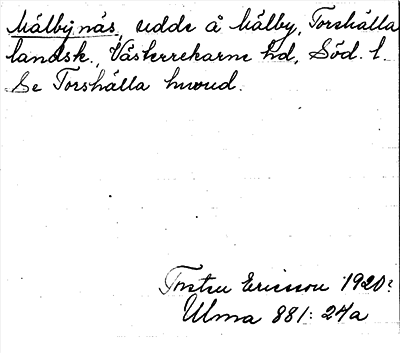 Mälbynäs, udde å Mälby, Torshälla
landsk., Västerrekarne hd, Söd. l.
Se Torshälla huvud.
Torsten Ericsson 1920?
Ulma 881: 24a